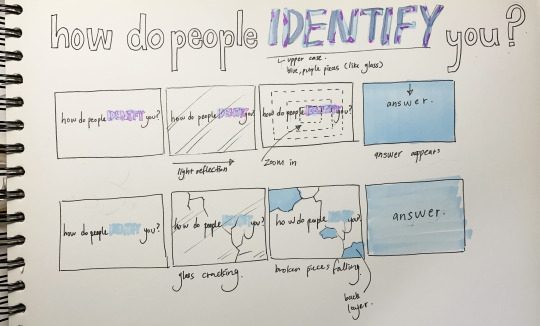 how do people IDENTIFY you?
upper case.
blue, purple pieces (like glass)
how do people IDENTIFY you?
how do people IDENTIFY you?
how do people IDENTIFY you?
answer.
light reflection
zoom in
answer appears
how do people IDENTIFY you?
how do people IDENTIFY you?
how do people IDENTIFY you?
answer.
glass cracking.
broken pieces falling.
back
layer.